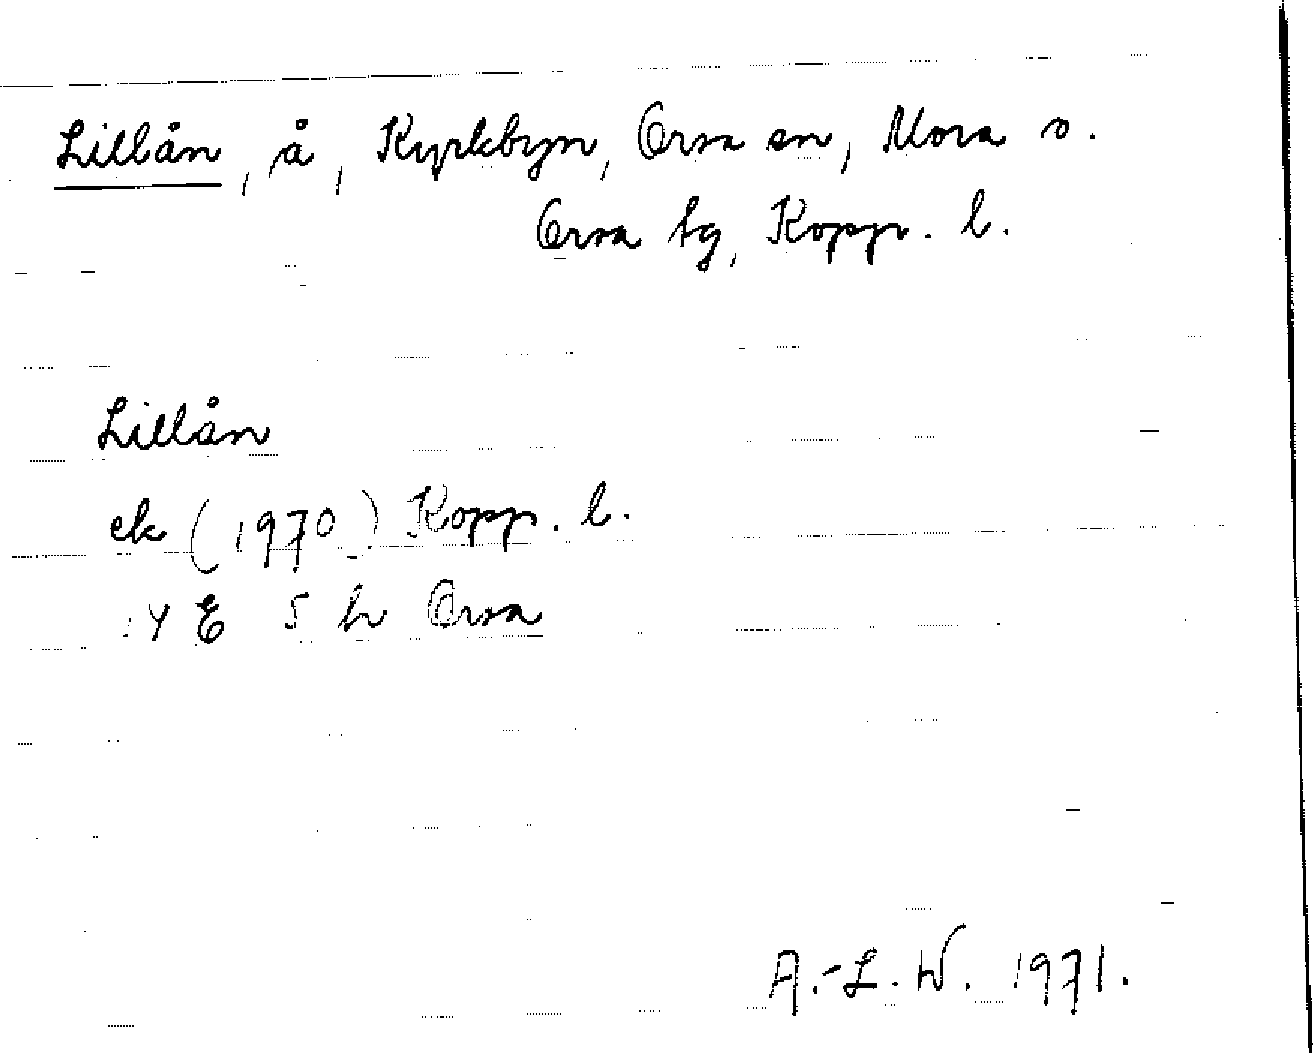 Lillån, å, Kyrkbyn, Orsa sn, Mora s.
Orsa tg, Kopp. l.
Lillån
ek (1970) Kopp. l.
:4 E 5 h Orsa
A.-L. W. 1971.